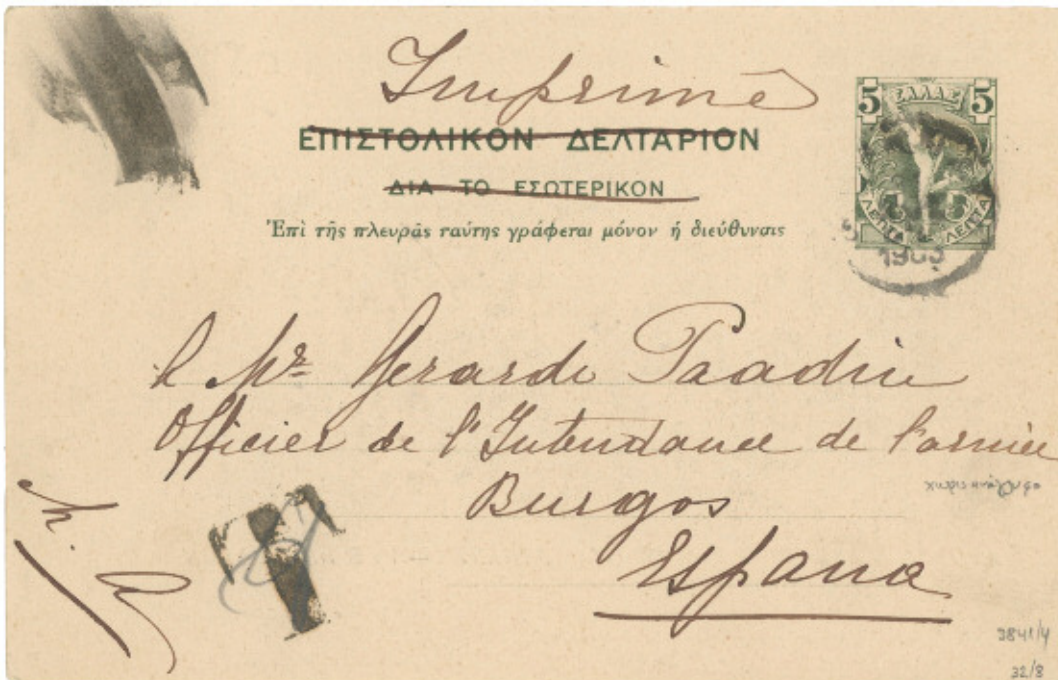 Imprimé
ΕΠΙΣΤΟΛΙΚΟΝ ΔΕΛΤΑΡΙΟΝ
ΔΙΑ ΤΟ ΕΣΩΤΕΡΙΚΟΝ
Ἐπὶ τῆς πλευρᾶς ταύτης γράφεται μόνον ἡ διεύθυνσις
5 ΕΛΛΑΣ 5
5 5
ΛΕΠΤΑ ΛΕΠΤΑ
Mr Gerardo
Officier de l'Intendance de l'armée
Burgos
España
T
3841/4
32/8